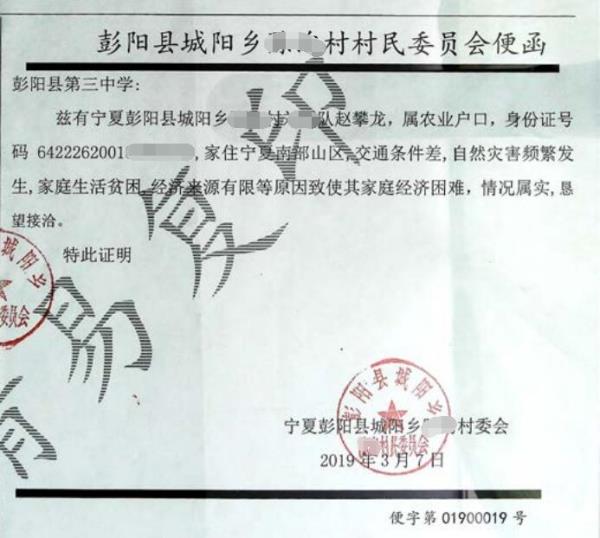 彭阳县城阳乡 村村民委员会便函
彭阳县第三中学：
兹有宁夏彭阳县城阳乡 队赵攀龙，属农业户口，身份证号
码 6422262001 ，家住宁夏南部山区，交通条件差，自然灾害频繁发
生，家庭生活贫困，经济来源有限等原因致使其家庭经济困难，情况属实，恳
望接洽。
特此证明
城阳乡
委员会
彭阳县城阳乡
村民委员会
宁夏彭阳县城阳乡 村委会
2019 年 3 月 7 日
便字第 01900019 号
易复印